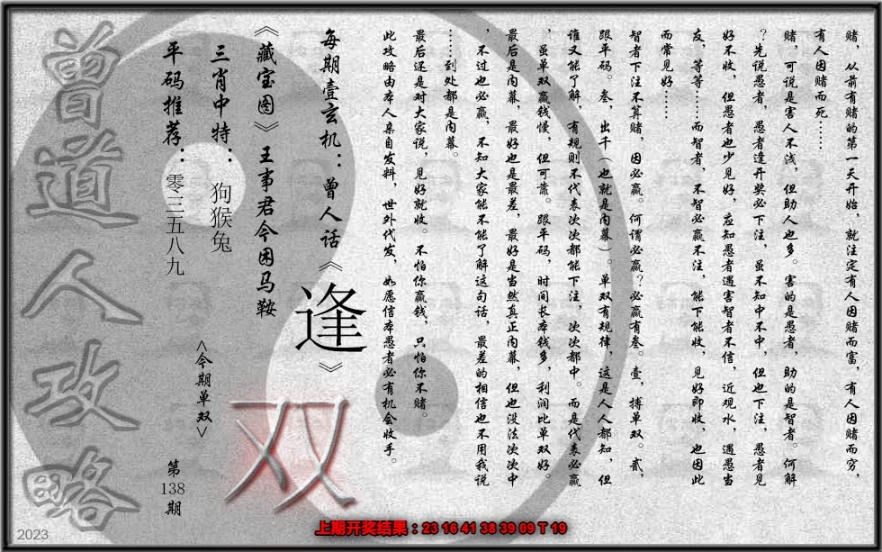 赌，从前有赌的第一天开始，就注定有人因赌而富，有人因赌而穷，
有人因赌而死……
赌，可说是害人不浅，但助人也多。害的是愚者，助的是智者。何解
？先说愚者，愚者逢开奖必下注，虽不知中不中，但也下注，愚者见
好不收，但愚者也少见好，应知愚者遇害智者不信，近观水，遇愚当
友，等等……而智者，不智必赢不注，能下能收，见好即收，也因此
而常见好……
智者下注不算赌，因必赢。何谓必赢？必赢有叁。壹，搏单双。贰，
跟平码。叁，出千（也就是内幕）。单双有规律，这是人人都知，但
谁又能了解，有规则不代表次次都能下注，次次都中。而是代表必赢
，虽单双赢钱慢，但可靠。跟平码，时间长本钱多，利润比单双好。
最后是内幕，最好也是最差，最好是当然真正内幕，但也没法次次中
，不过也必赢，不知大家能不能了解这句话，最差的相信也不用我说
……到处都是内幕。
最后还是对大家说，见好就收。不怕你赢钱，只怕你不赌。
此攻略由本人亲自发料，世外代发，如愿信本愚者必有机会收手。
每期壹玄机：曾人话《逢》
《藏宝图》王事君今困马鞍
三肖中特：狗猴兔
平码推荐：零三五八九
<今期单双>
双
第138期
曾道人攻略
上期开奖结果：23 16 41 38 39 09 T 19
2023